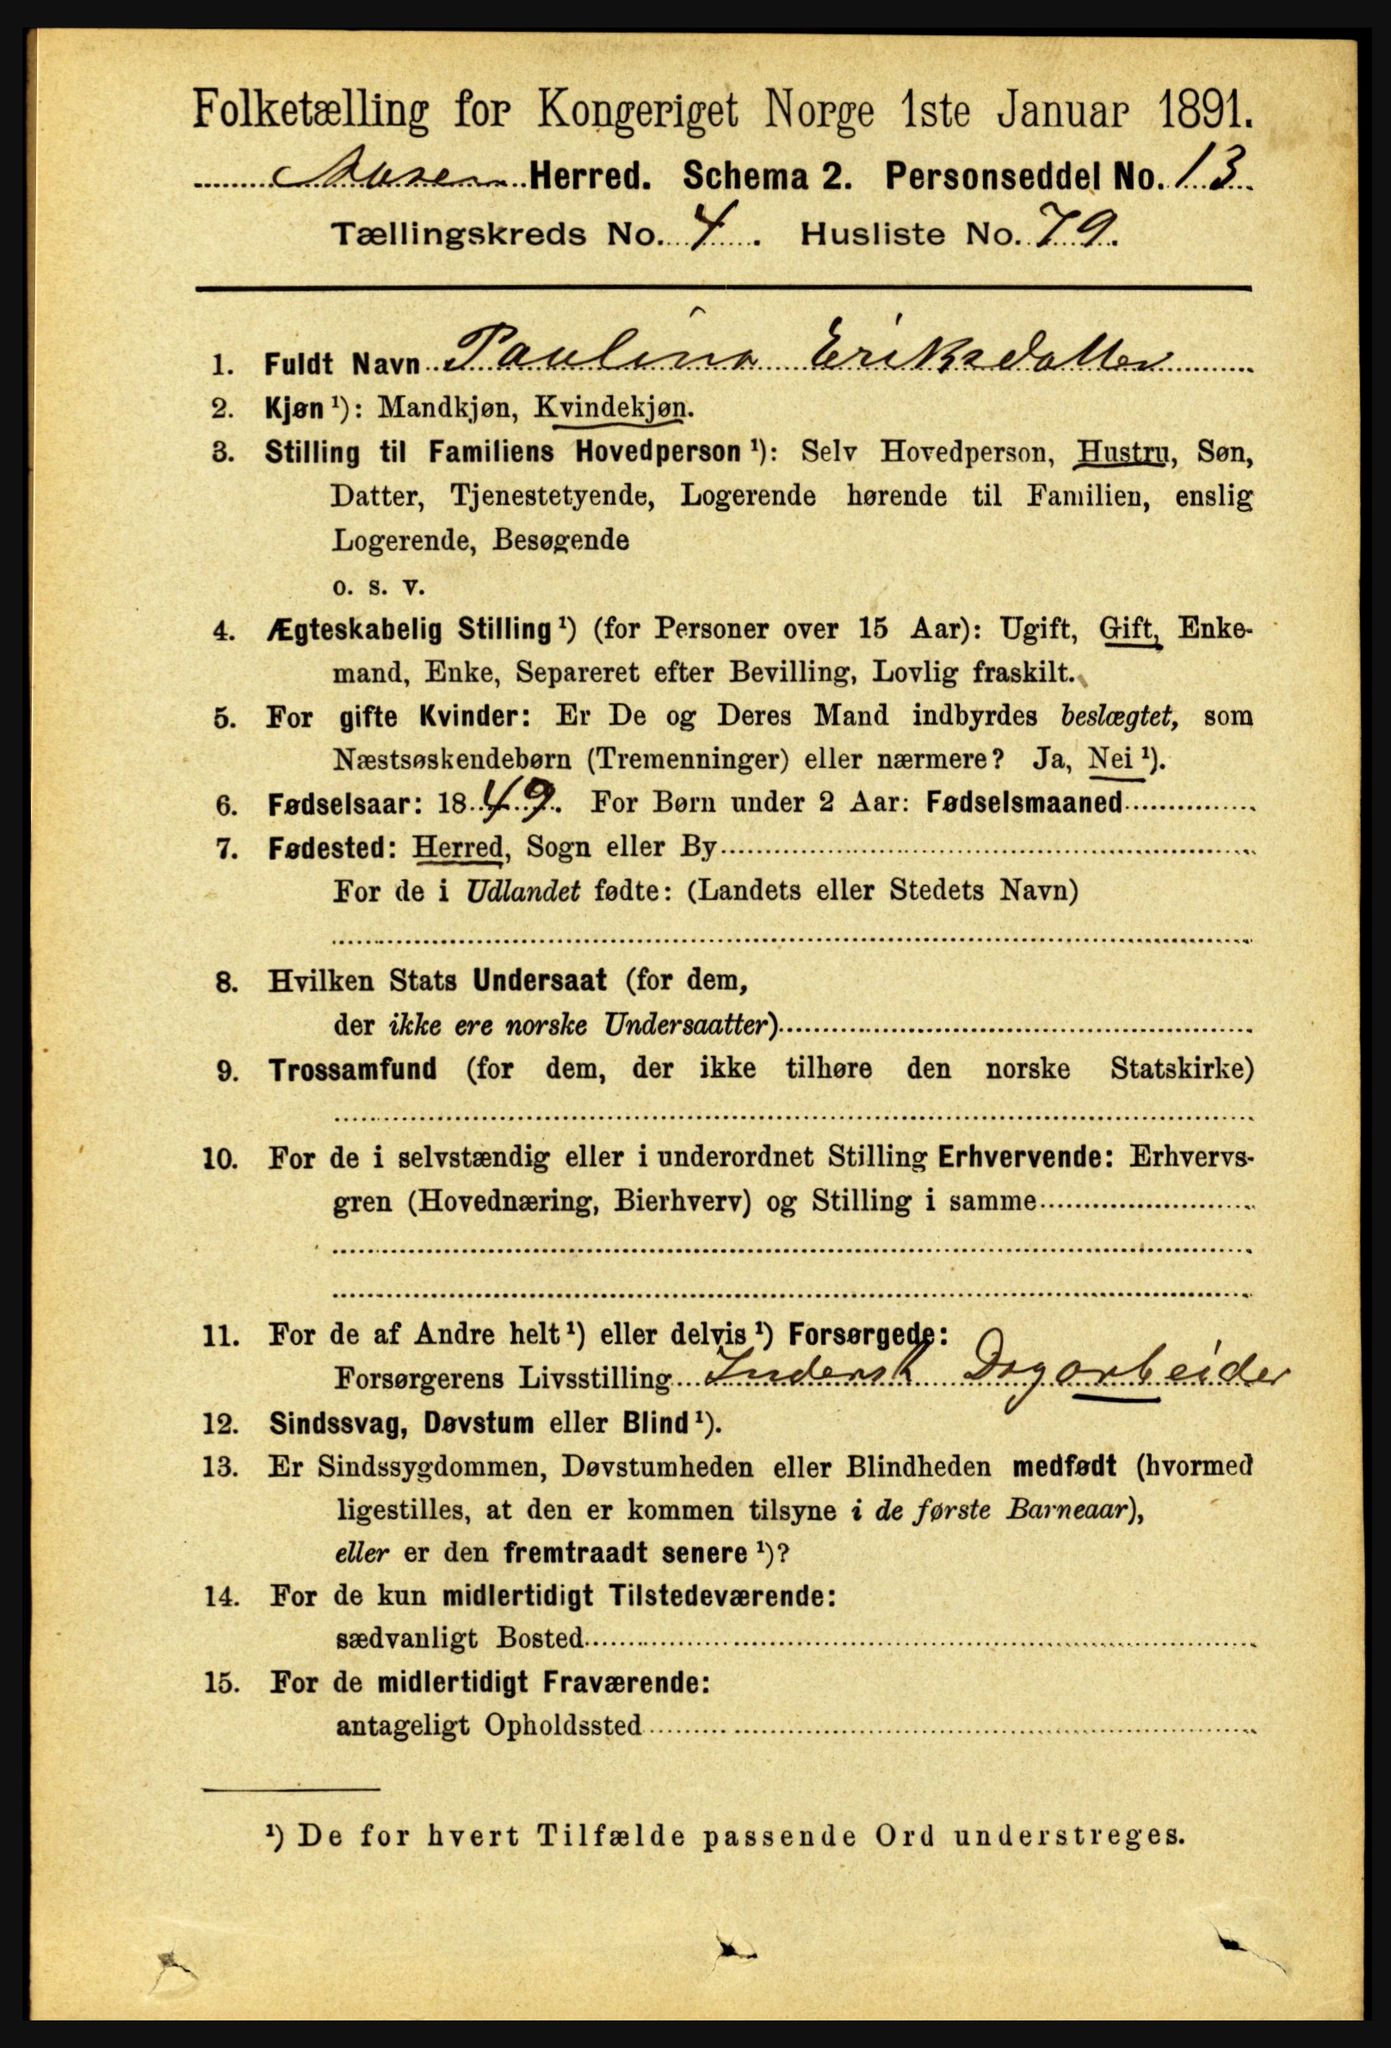 Folketælling for Kongeriget Norge 1ste Januar 1891.
Aasen Herred. Schema 2. Personseddel No. 13
Tællingskreds No. 4. Husliste No. 79.
1. Fuldt Navn Paulina Eriksdatter
2. Kjøn ¹): Mandkjøn, Kvindekjøn.
3. Stilling til Familiens Hovedperson ¹): Selv Hovedperson, Hustru, Søn,
Datter, Tjenestetyende, Logerende hørende til Familien, enslig
Logerende, Besøgende
o. s. v.
4. Ægteskabelig Stilling ¹) (for Personer over 15 Aar): Ugift, Gift, Enke-
mand, Enke, Separeret efter Bevilling, Lovlig fraskilt.
5. For gifte Kvinder: Er De og Deres Mand indbyrdes beslægtet, som
Næstsøskendebørn (Tremenninger) eller nærmere? Ja, Nei ¹).
6. Fødselsaar: 1849. For Børn under 2 Aar: Fødselsmaaned
7. Fødested: Herred, Sogn eller By
For de i Udlandet fødte: (Landets eller Stedets Navn)
8. Hvilken Stats Undersaat (for dem,
der ikke ere norske Undersaatter)
9. Trossamfund (for dem, der ikke tilhøre den norske Statskirke)
10. For de i selvstændig eller i underordnet Stilling Erhvervende: Erhvervs-
gren (Hovednæring, Bierhverv) og Stilling i samme
11. For de af Andre helt ¹) eller delvis ¹) Forsørgede:
Forsørgerens Livsstilling Indersk Dagarbeider
12. Sindssvag, Døvstum eller Blind ¹).
13. Er Sindssygdommen, Døvstumheden eller Blindheden medfødt (hvormed
ligestilles, at den er kommen tilsyne i de første Barneaar),
eller er den fremtraadt senere ¹)?
14. For de kun midlertidigt Tilstedeværende:
sædvanligt Bosted
15. For de midlertidigt Fraværende:
antageligt Opholdssted
¹) De for hvert Tilfælde passende Ord understreges.